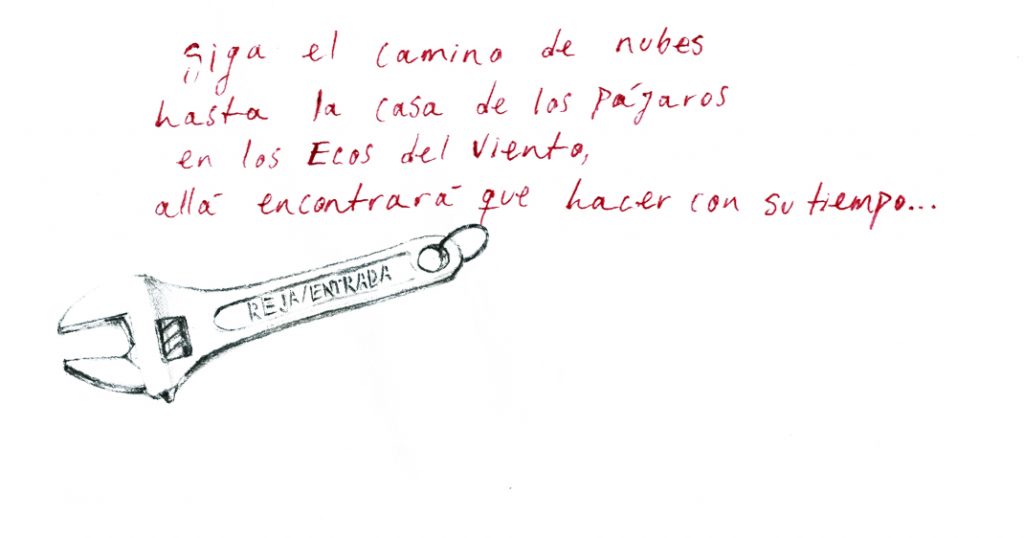 Siga el camino de nubes
hasta la casa de los Pájaros
en los Ecos del Viento,
allá encontrará que hacer con su tiempo...
REJA/ENTRADA